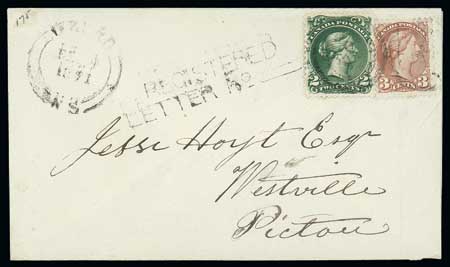 CANADA POSTAGE CANADA POSTAGE
2 TWO CENTS 2 3 CENTS 3
REGISTERED
LETTER No
N.S
Jesse Hoyt Esqr
Westville
Pictou